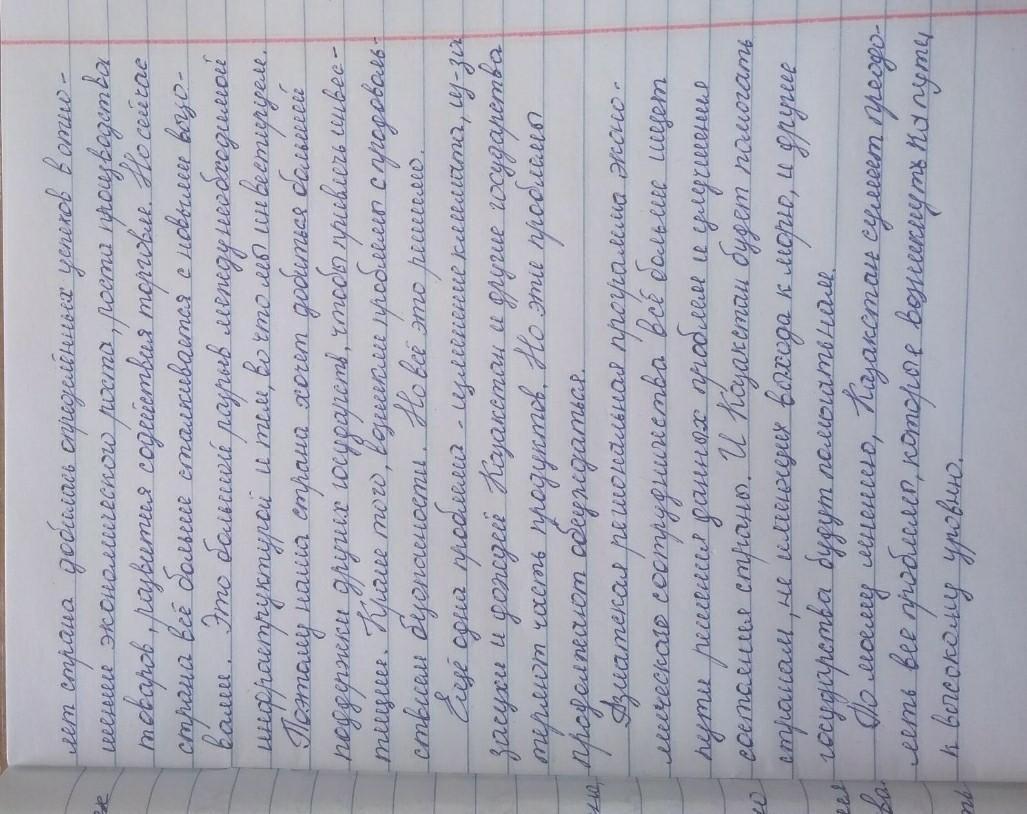 лет стран добилась определённых успехов в отно-
шении экономического роста, роста производства
товаров, развития содействия торговле. Но сейчас
страна всё больше сталкивается с новыми вызо-
вами. Это большой разрыв между необходимой
инфраструктурой и тем, во что мы инвестируем.
Поэтому наша страна хочет добиться большей
поддержки других государств, чтобы привлечь инвес-
тиции. Кроме того, возникли проблемы с продоволь-
ственной безопасностью. Но всё это решимо.
Ещё одна проблема - изменение климата, из-за
засухи и дождей Казахстан и другие государства
теряют часть продуктов. Но эти проблемы
продолжают обсуждаться.
Азиатская региональная программа эконо-
мического сотрудничества всё больше ищет
пути решения данных проблем и улучшения
состояния страны. И Казахстан будет помогать
странам, не имеющих выхода к морю, и другие
государства будут помогать нам.
По моему мнению, Казахстан сумеет преодо-
леть все проблемы, которые возникнуть на пути
к высокому уровню.